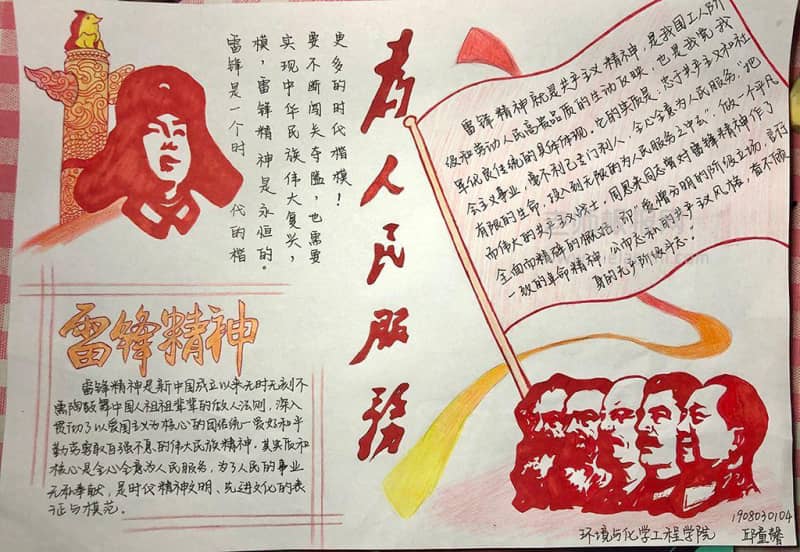 雷锋是一个时代的楷
模，雷锋精神是永恒的。
实现中华民族伟大复兴，
要不断闯关夺隘，也需要
更多的时代楷模！
为人民服务
雷锋精神就是共产主义精神，是我国工人阶
级和劳动人民高尚品质的生动反映，也是我党我
军优良传统的具体体现。它的实质是，忠于共产主义和社
会主义事业，毫不利己专门利人、全心全意为人民服务。"把
有限的生命，投入到无限的为人民服务之中去"做一个平凡
而伟大的共产主义战士，周恩来同志曾对雷锋精神作了
全面而精确的概括，即"爱憎分明的阶级立场、言行
一致的革命精神、公而忘私的共产主义风格、奋不顾
身的无产阶级斗志。
雷锋精神
雷锋精神是新中国成立以来无时无刻不
熏陶鼓舞中国人祖祖辈辈的做人法则，深入
贯彻了以爱国主义为核心的团结统一爱好和平
勤劳勇敢自强不息的伟大民族精神。其实质和
核心是全心全意为人民服务，为了人民的事业
无私奉献，是时代精神文明、先进文化的表
证与模范。
1908030104
环境与化学工程学院 邱童馨